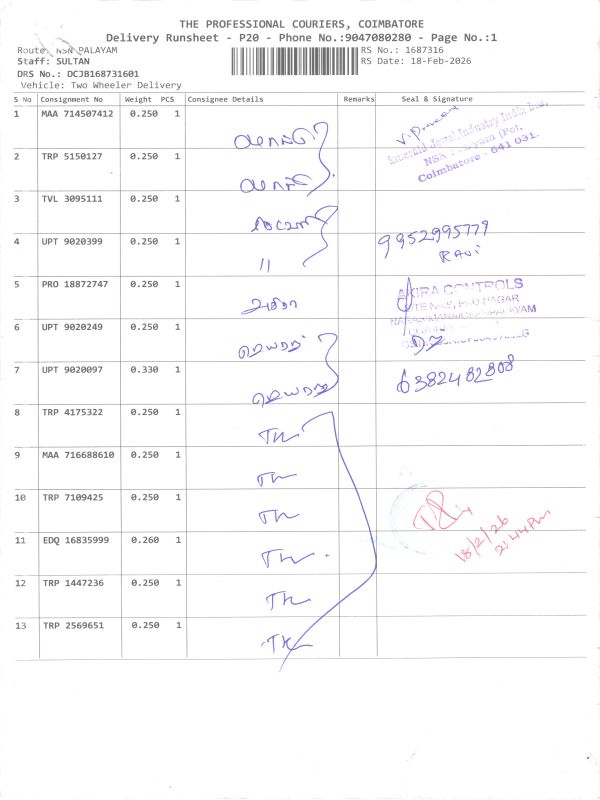 THE PROFESSIONAL COURIERS, COIMBATORE
Delivery Runsheet - P20 - Phone No.:9047080280 - Page No.:1
Route: NSN PALAYAM
RS No.: 1687316
Staff: SULTAN
RS Date: 18-Feb-2026
DRS No.: DCJB168731601
Vehicle: Two Wheeler Delivery
S No Consignment No Weight PCS Consignee Details Remarks Seal & Signature
1 MAA 714507412 0.250 1
Emerald Jewel Industry India Ltd,
NSN Palayam (Po),
Coimbatore - 641 031.
2 TRP 5150127 0.250 1
3 TVL 3095111 0.250 1
4 UPT 9020399 0.250 1 11 9952995779
RAVI
5 PRO 18872747 0.250 1
AKIRA CONTROLS
6 UPT 9020249 0.250 1
7 UPT 9020097 0.330 1 6382482808
8 TRP 4175322 0.250 1 TK
9 MAA 716688610 0.250 1 TK
10 TRP 7109425 0.250 1 TK
18/2/26
2:44 Pm
11 EDQ 16835999 0.260 1 TK
12 TRP 1447236 0.250 1 TK
13 TRP 2569651 0.250 1 TK